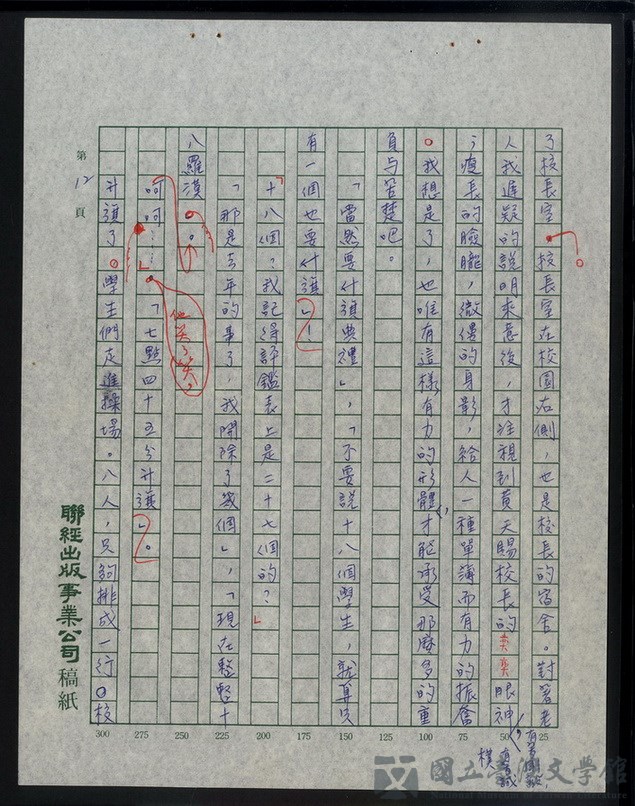 了校長室。校長室在校園右側，也是校長的宿舍。對著老
人我遲疑的說明來甚後，才注視到黃天賜校長的奕奕眼神
，瘦長的臉龐，微僂的身影，給人一種單薄而有力的振奮
。我想是了，也唯有這樣有力的形體，才能承受那麼多的重
負与苦楚吧。
「當然要升旗典禮」，「不要說十八個學生，就算只
有一個也要升旗」！
「十八個？我記得評鑑表上是二十七個的？」
「那是去年的事了，我開除了幾個」，「現在整整十
八羅漢。」
呵呵……」「七點四十五分升旗」。
他笑了笑，
升旗了。學生們走進操場。八人，只夠排成一行。校
第12頁
25
50
75
100
125
150
175
200
225
250
275
300
聯經出版事業公司稿紙
國立臺灣文學館